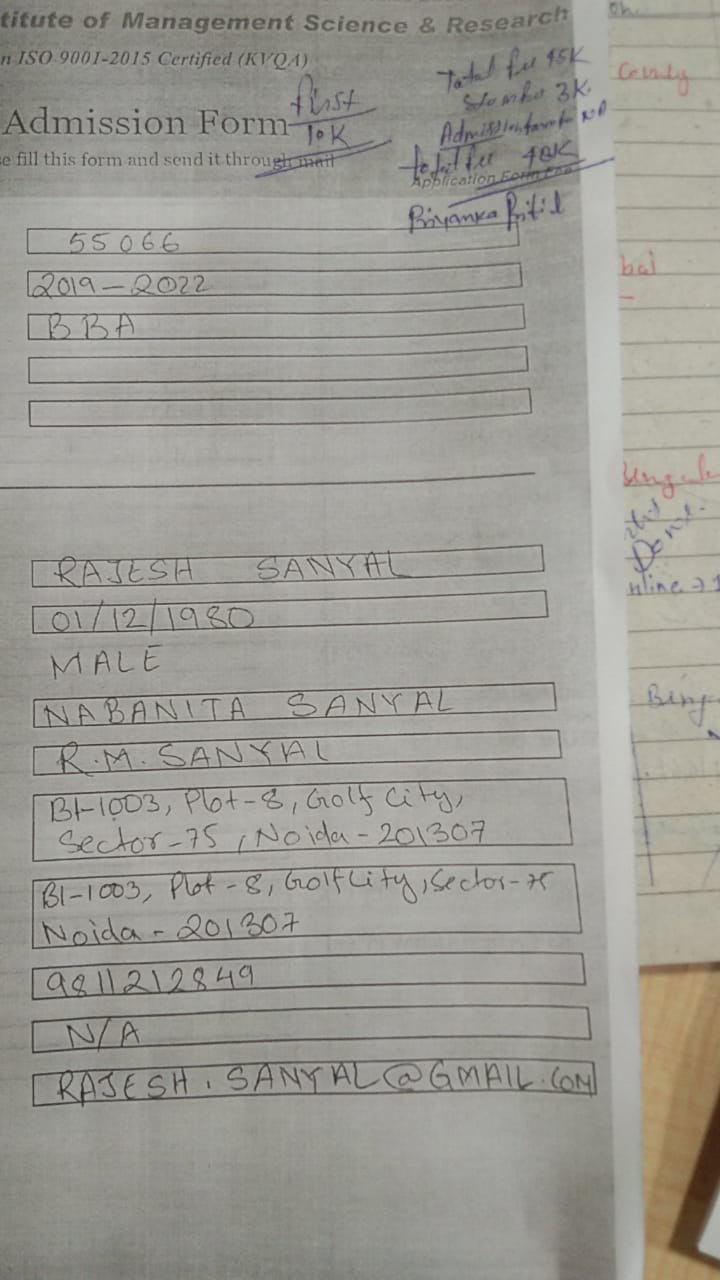 titute of Management Science & Research
n ISO 9001-2015 Certified (KVQA)
Admission Form
first
10K
e fill this form and send it through mail
Total fee 45K
3K.
total fee 48K
Application Form Fee
Priyanka
55066
2019-2022
BBA
RAJESH SANYAL
01/12/1980
MALE
NABANITA SANYAL
R.M. SANYAL
B1-1003, Plot-8, Golf City,
Sector-75, Noida-201307
B1-1003, Plot-8, Golf City, Sector-75
Noida-201307
9811212849
N/A
RAJESH.SANYAL@GMAIL.COM
bai
Done.